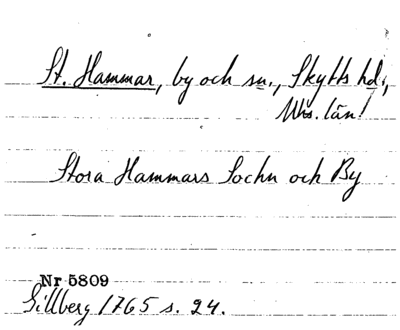 St. Hammar, by och sn., Skytts hd.,
Mhs. län!
Stora Hammars Sochn och By
Nr 5809
Gillberg 1765 s. 24.